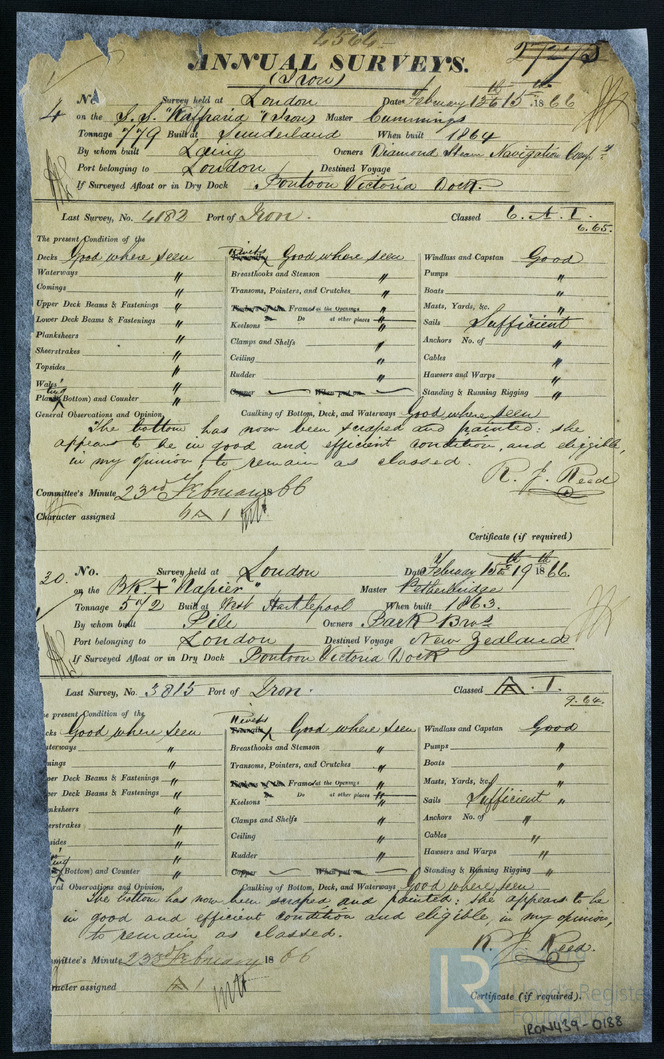 4566
ANNUAL SURVEYS.
(Iron)
4 No. Survey held at London Date February 12th & 15th 1866
on the S.S. "Kaffraria" (Iron) Master Cummings
Tonnage 779 Built at Sunderland When built 1864
By whom built Laing Owners Diamond Steam Navigation Compy
Port belonging to London Destined Voyage
If Surveyed Afloat or in Dry Dock Pontoon Victoria Dock.
Last Survey, No. 4182 Port of Iron. Classed 6. A. 1.
6.65.
The present Condition of the
Decks Good where seen Rivets Good where seen Windlass and Capstan Good
Waterways " Breasthooks and Stemson " Pumps "
Comings " Transoms, Pointers, and Crutches " Boats "
Upper Deck Beams & Fastenings " Frames at the Openings " Masts, Yards, &c. "
Lower Deck Beams & Fastenings " Do at other places " Sails Sufficient
Keelsons "
Planksheers " Clamps and Shelfs " Anchors No. of "
Sheerstrakes " Ceiling " Cables "
Topsides " Rudder " Hawsers and Warps "
Wales " Copper When put on Standing & Running Rigging "
Plating (Bottom) and Counter "
General Observations and Opinion, Caulking of Bottom, Deck, and Waterways Good where seen
The bottom has now been scraped and painted: she
appears to be in good and efficient condition, and eligible,
in my opinion, to remain as classed.
R. J. Reed
Committee's Minute 23rd February 1866
Character assigned 6 A 1
Certificate (if required)
30. No. Survey held at London Date February 15th & 19th 1866.
on the Bk + "Napier" Master Petherbridge
Tonnage 542 Built at West Hartlepool When built 1863.
By whom built Pile Owners Park Bros
Port belonging to London Destined Voyage New Zealand
If Surveyed Afloat or in Dry Dock Pontoon Victoria Dock
Last Survey, No. 3815 Port of Iron. Classed A. 1.
9.64.
e present Condition of the
cks Good where seen Rivets Good where seen Windlass and Capstan Good
terways " Breasthooks and Stemson " Pumps "
nings " Transoms, Pointers, and Crutches " Boats "
per Deck Beams & Fastenings " Frames at the Openings " Masts, Yards, &c. "
er Deck Beams & Fastenings " Do at other places " Sails Sufficient "
Keelsons "
nksheers " Clamps and Shelfs " Anchors No. of "
erstrakes " Ceiling " Cables "
sides " Rudder " Hawsers and Warps "
Copper When put on Standing & Running Rigging "
(Bottom) and Counter "
ral Observations and Opinion, Caulking of Bottom, Deck, and Waterways Good where seen
The bottom has now been scraped and painted: she appears to be
in good and efficient condition and eligible, in my opinion,
to remain as classed.
R. J. Reed.
mmittee's Minute 23rd February 1866
racter assigned A 1
Certificate (if required).
LR
Lloyd's Register
Foundation
IRON439-0188